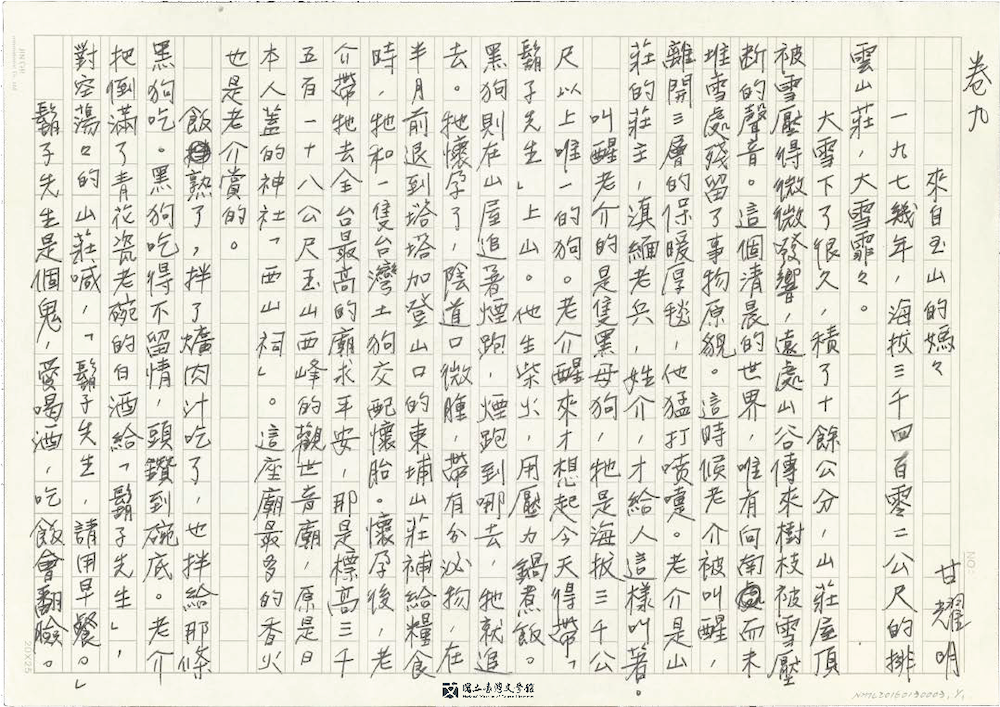 卷九
來自玉山的媽々
甘耀明
一九七幾年，海拔三千四百零二公尺的排
雲山莊，大雪霏々。
大雪下了很久，積了十餘公分，山莊屋頂
被雪壓得微微發響，遠處山谷傳來樹枝被雪壓
断的聲音。這個清晨的世界，唯有向南處而未
堆雪處殘留了事物原貌。這時候老介被叫醒，
離開三層的保暖厚毯，他猛打噴嚏。老介是山
莊的莊主，滇緬老兵，姓介，才給人這樣叫著。
叫醒老介的是隻黑母狗，牠是海拔三千公
尺以上唯一的狗。老介醒來才想起今天得帶「
鬍子先生」上山。他生柴火，用壓力鍋煮飯。
黑狗則在山屋追著煙跑，煙跑到哪去，牠就追
去。牠懷孕了，陰道口微腫，帶有分泌物，在
半月前退到塔塔加登山口的東埔山莊補給糧食
時，牠和一隻台灣土狗交配懷胎。懷孕後，老
介帶牠去全台最高的廟求平安，那是標高三千
五百一十八公尺玉山西峰的觀世音廟，原是日
本人蓋的神社「西山祠」。這座廟最多的香火
也是老介賞的。
飯熟了，拌了爌肉汁吃了，也拌給那條
黑狗吃。黑狗吃得不留情，頭鑽到碗底。老介
把倒滿了青花瓷老碗的白酒給「鬍子先生」，
對空蕩々的山莊喊，「鬍子先生，請用早餐。」
鬍子先生是個鬼，愛喝酒，吃飯會翻臉。
國立臺灣文學館
National Museum of Taiwan Literature
NMTL20160190003,1/1
NO.
20X25